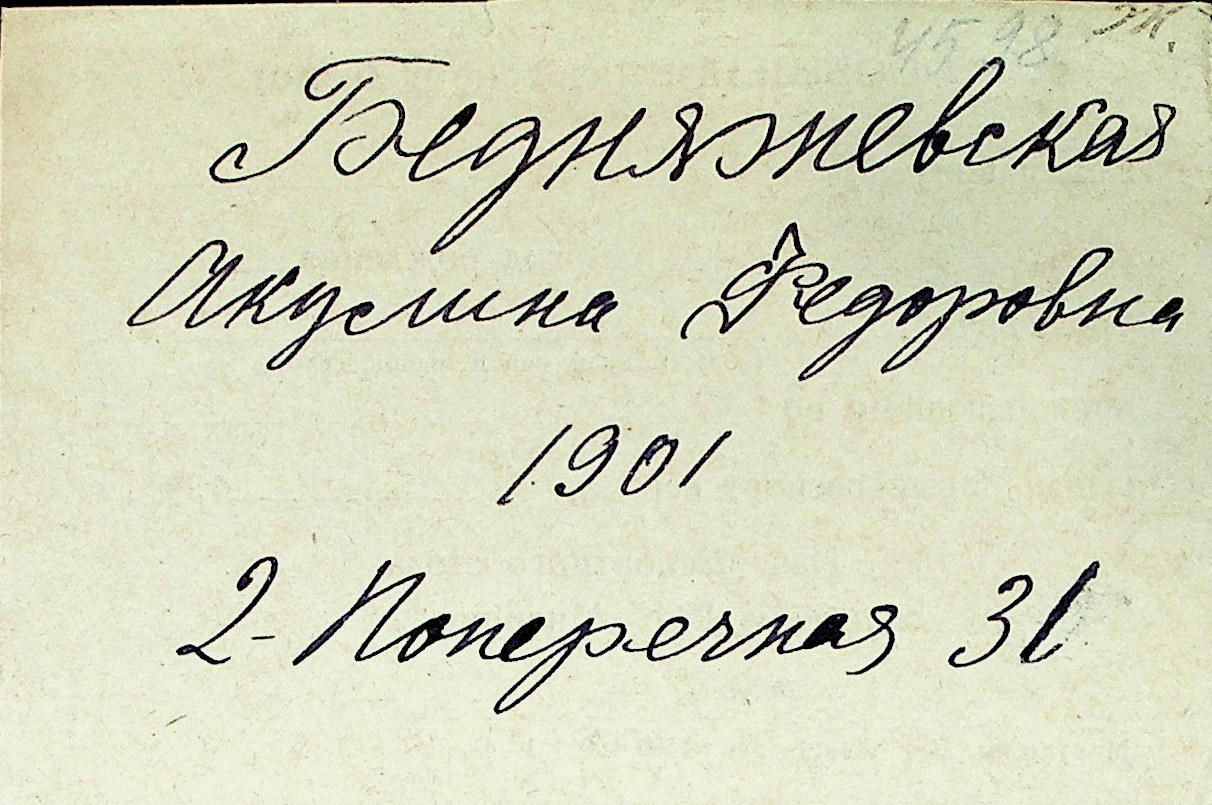 4598
Бедняжевская
Акулина Федоровна
1901
2-Поперечная 31